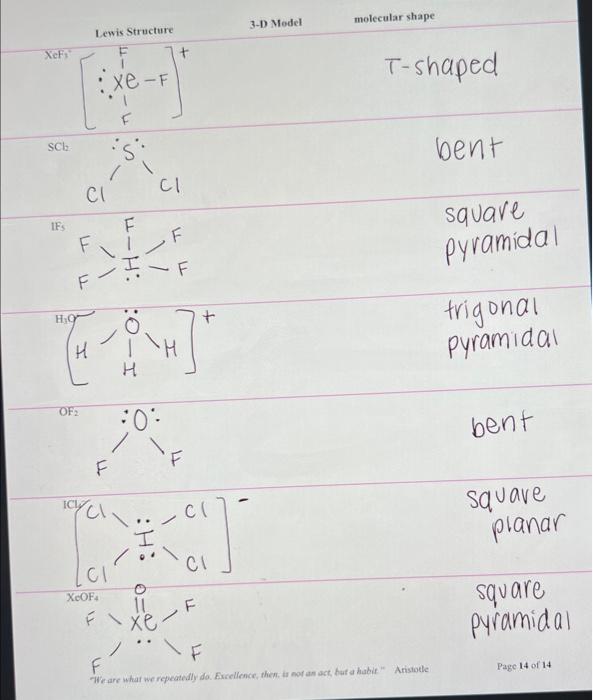 Lewis Structure 3-D Model molecular shape
XeF₃⁺
F
:Xe-F
F
+
T-shaped
SCl₂
:S:
Cl Cl
bent
IF₅
F
F F
I
F F
square
pyramidal
H₃O⁺
O
H H
H
+
trigonal
pyramidal
OF₂
:O:
F F
bent
ICl₄
Cl Cl
I
Cl Cl
-
square
planar
XeOF₄
O
F Xe F
F F
square
pyramidal
"We are what we repeatedly do. Excellence, then, is not an act, but a habit." Aristotle Page 14 of 14